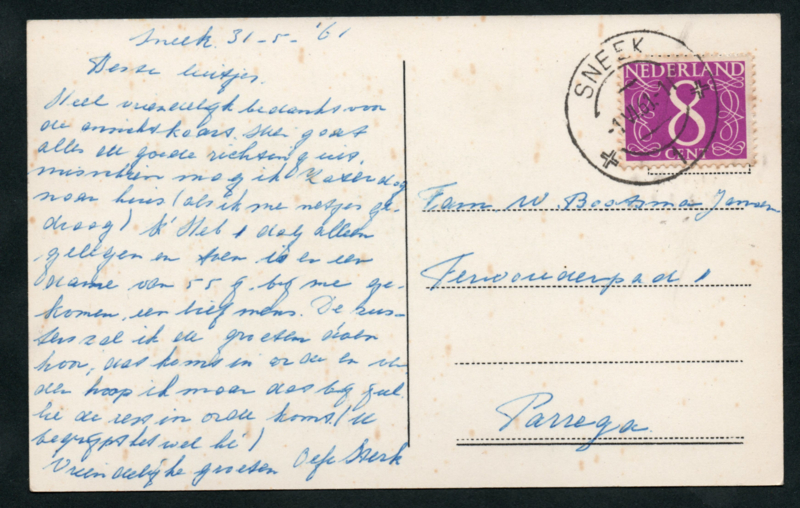 Sneek 31-5-'61
Beste luitjes.
Heel vriendelijk bedankt voor
de ansichtkaart. Hier gaat
alles de goede richting uit,
misschien mag ik Zaterdag
naar huis (als ik me netjes ge-
draag) 'k Heb 1 dag alleen
gelegen en toen is er een
dame van 55 j. bij me ge-
komen, een lief mens. De zus-
ters zal ik de groeten doen
hoor, dat komt in orde en ver-
der hoop ik maar dat bij jul-
lie de rest in orde komt (U
begrijpt het wel hè!)
Vriendelijke groeten Sterk
SNEEK
NEDERLAND
8
CENT
Fam. W. Bootsma-Jansen
1
Parrega